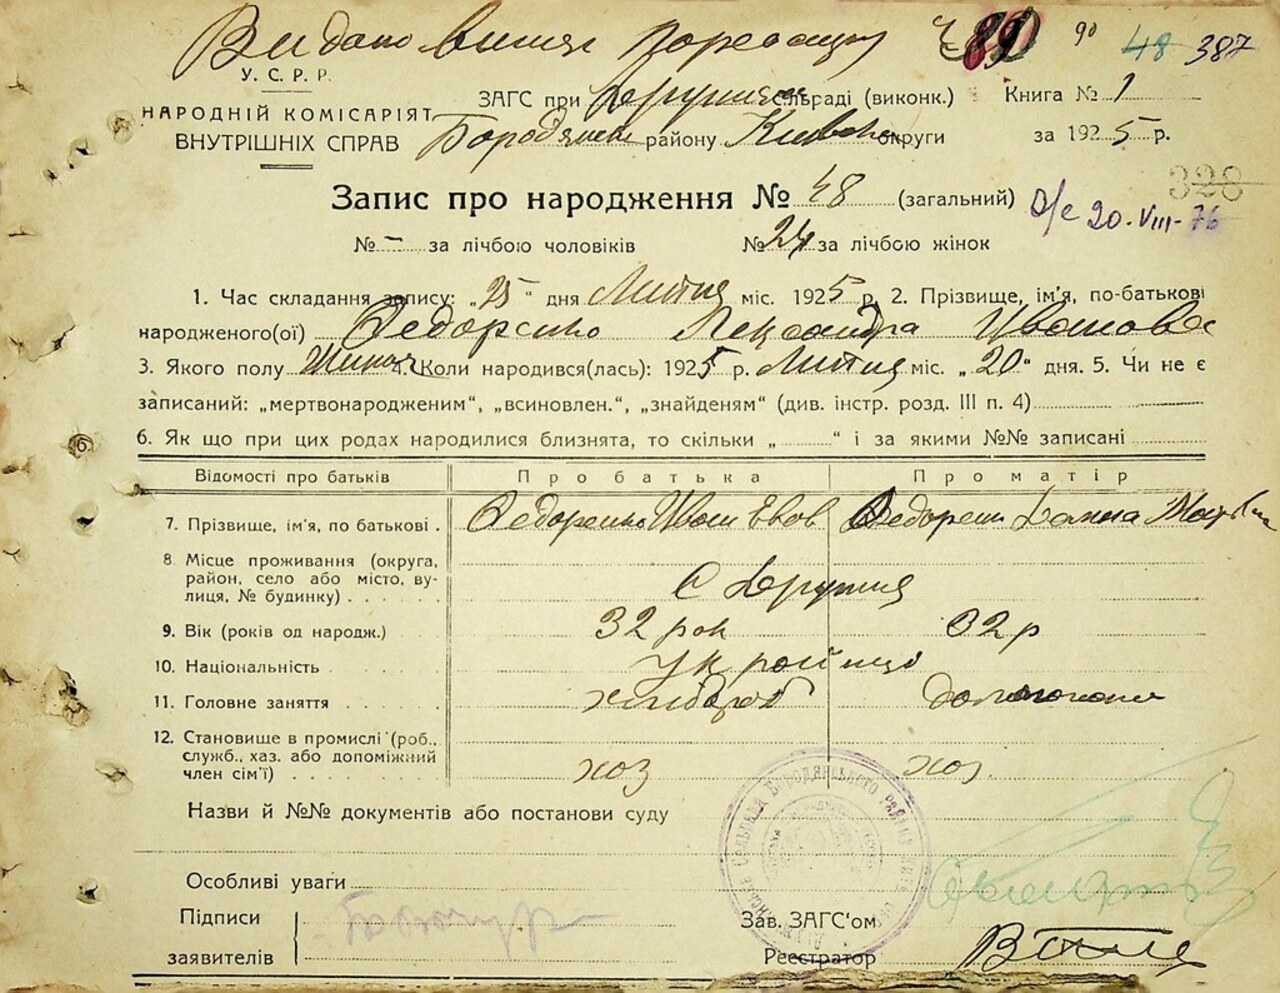 Видано витяг
90 48 387
У. С. Р. Р.
НАРОДНІЙ КОМІСАРІЯТ
ВНУТРІШНІХ СПРАВ
ЗАГС при Дружня сільраді (виконк.) Книга № 1
Бородянськ району Київськ округи за 1925 р.
328
Запис про народження № 48 (загальний)
20-VIII-76
№ – за лічбою чоловіків № 24 за лічбою жінок
1. Час складання запису: „25“ дня Лютня міс. 1925 р. 2. Прізвище, ім'я, по-батькові
народженого(ої) Федоренко Лександра Іванова
3. Якого полу Жиноч 4. Коли народився(лась): 1925 р. Лютня міс. „20“ дня. 5. Чи не є
записаний: „мертвонародженим“, „всиновлен.“, „знайденям“ (див. інстр. розд. III п. 4)
6. Як що при цих родах народилися близнята, то скільки „ “ і за якими №№ записані
Відомості про батьків Про батька Про матір
7. Прізвище, ім'я, по батькові . Федоренко Іван Федорен
8. Місце проживання (округа,
район, село або місто, ву-
лиця, № будинку) с Дружня
9. Вік (років од народж.) 32 рок 32 р
10. Національність українці
11. Головне заняття хлібороб
12. Становище в промислі (роб.,
служб., хаз. або допоміжний
член сім'ї) хоз хоз.
Назви й №№ документів або постанови суду
Особливі уваги
Підписи
заявителів
Зав. ЗАГС'ом
Реєстратор